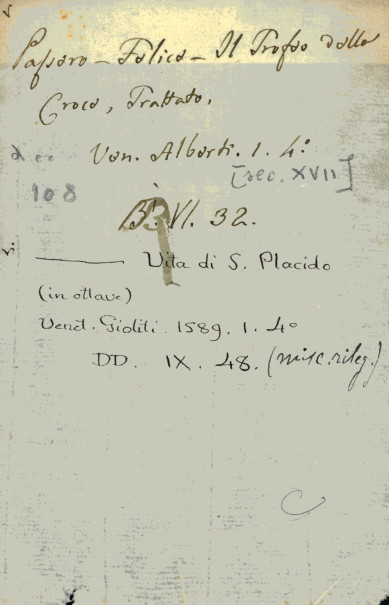 Passero - Felice - Il Trofeo della
Croce, Trattato,
Ven. Alberti. 1. 4°
[sec. XVII]
108
B. VI. 32.
——— Vita di S. Placido
(in ottave)
Venet. Gioliti. 1589. 1. 4°
DD. IX. 48. (misc. rileg.)
C